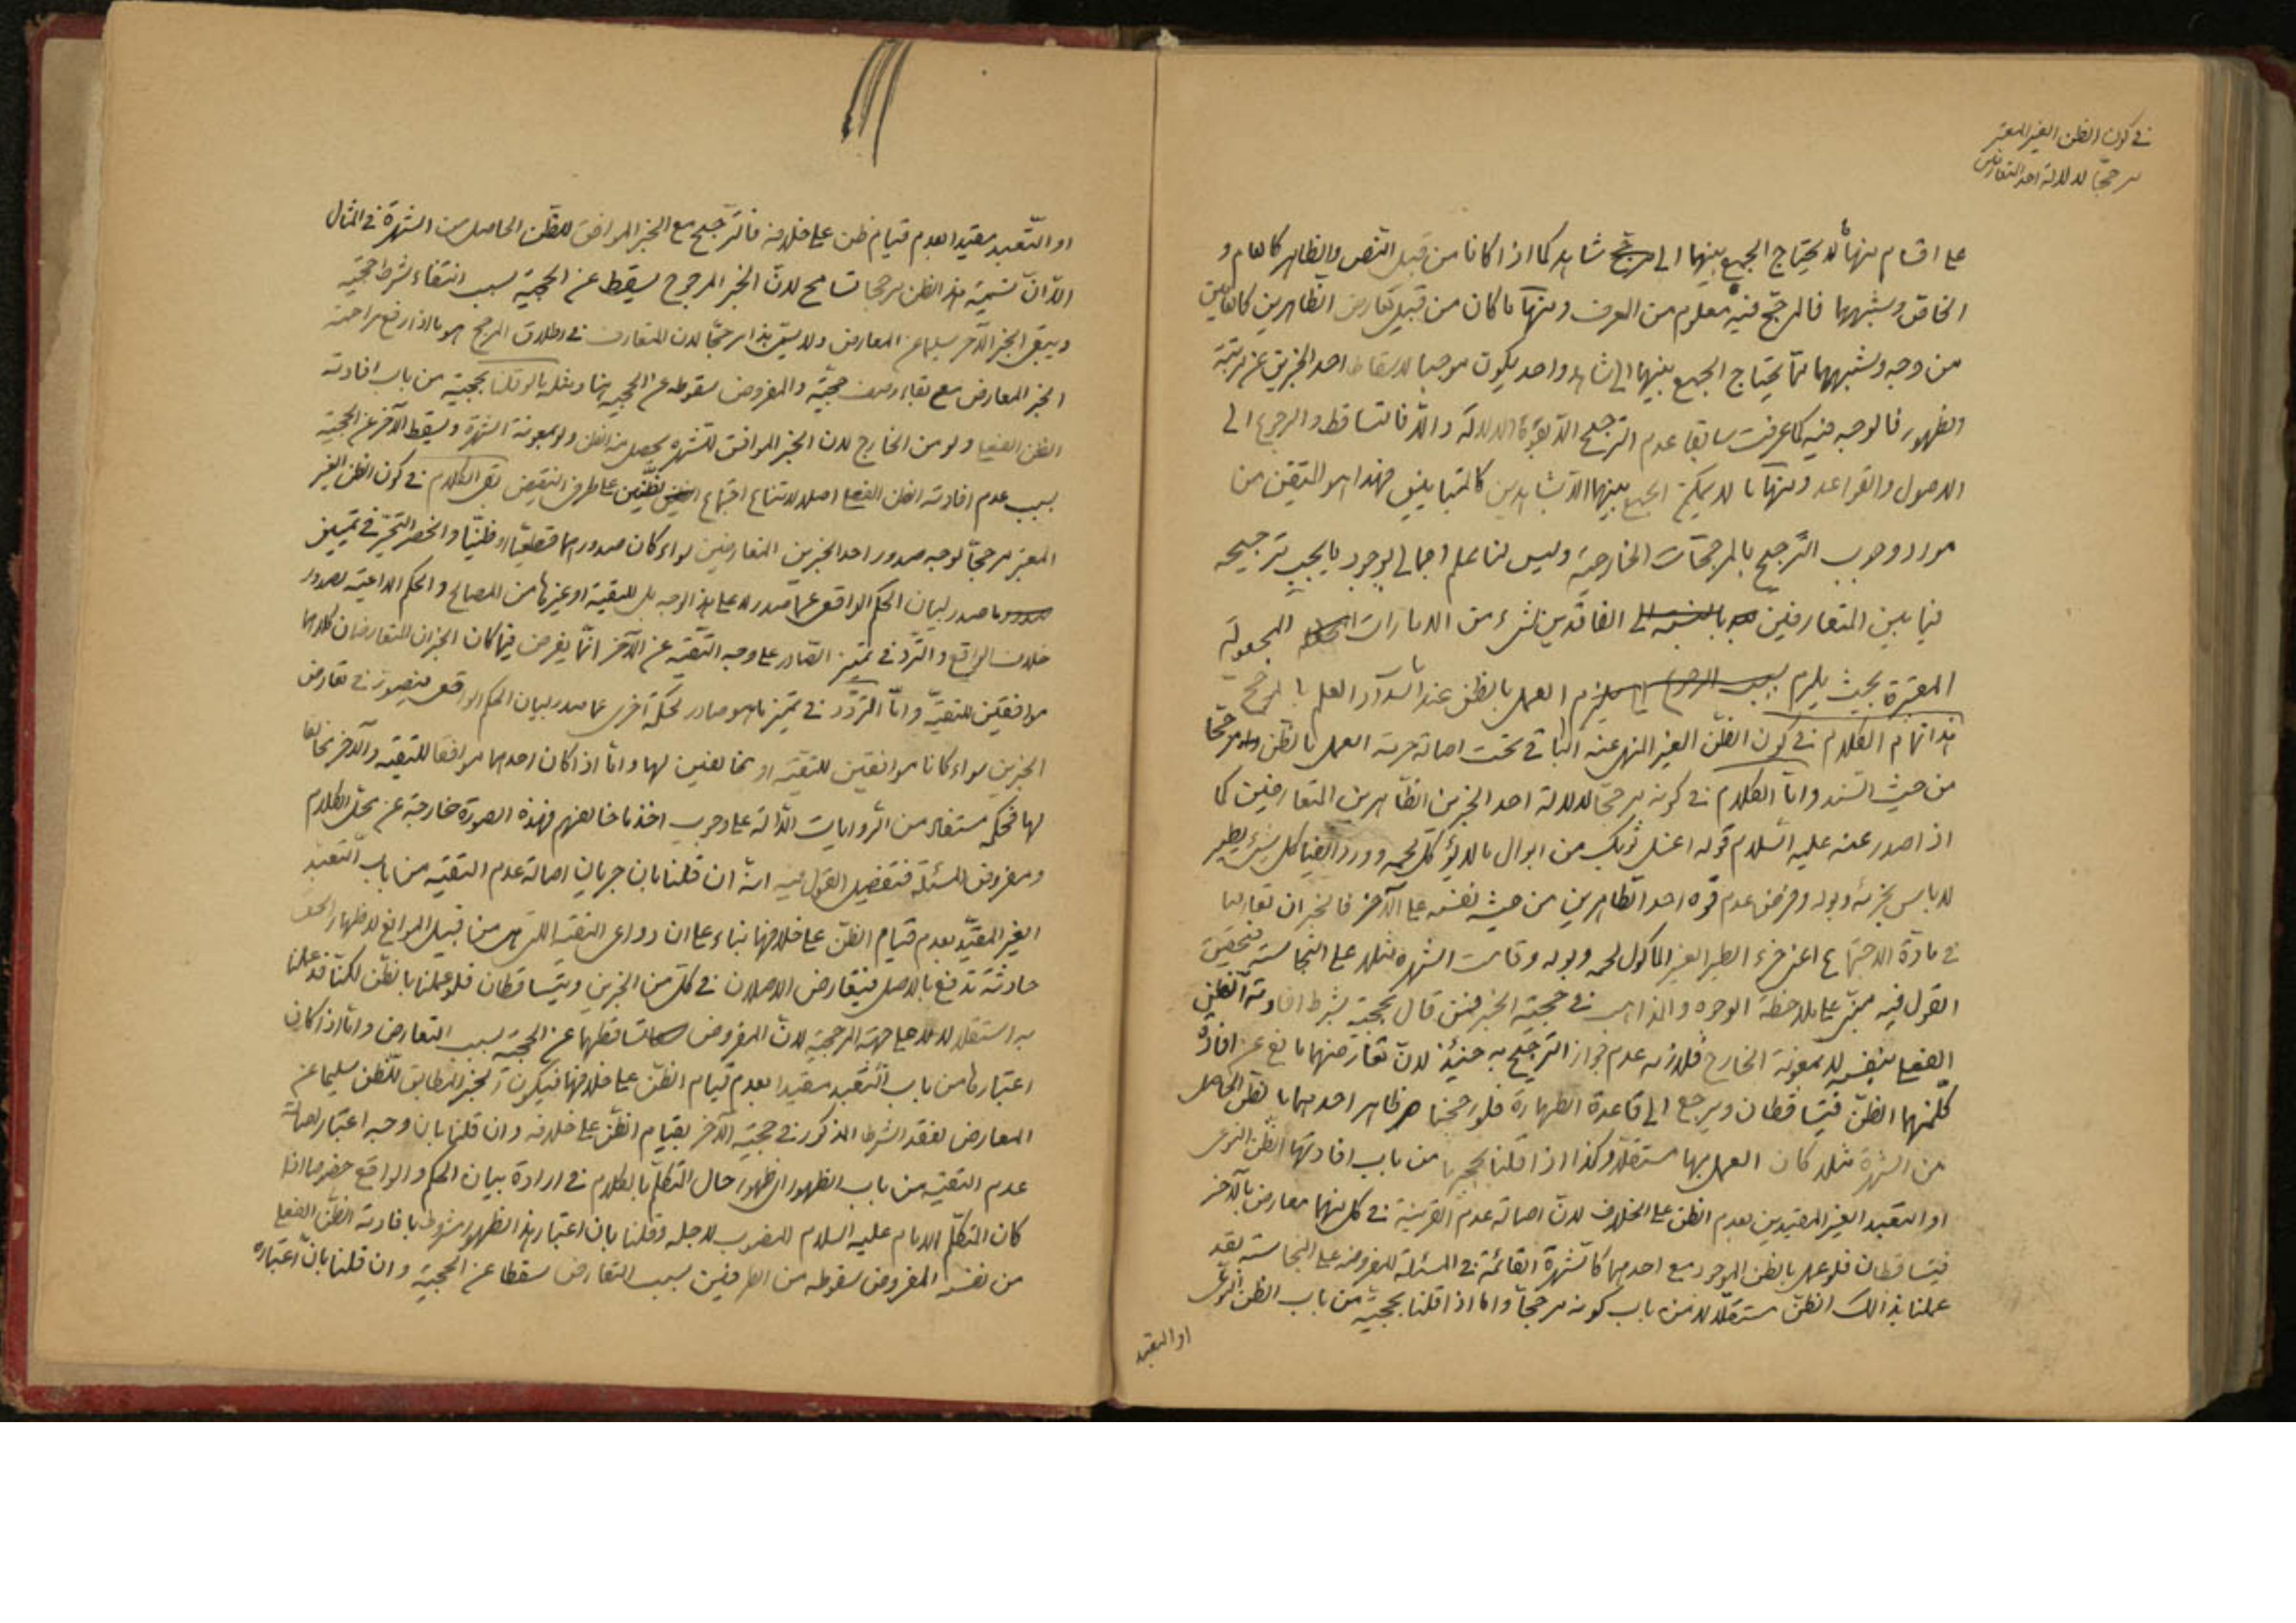 في كون الظن الغير المعتبر
مرجحا لدلالة احد المتعارضين
على اقسام منها ما لا يحتاج الجمع بينهما الى مرجح شاهد كما اذا كانا من قبيل النص والظاهر كالعام و
الخاص وشبههما فالمرجح فيه معلوم من العرف ومنها ما كان من قبيل تعارض الظاهرين كالعامين
من وجه وشبههما مما يحتاج الجمع بينهما الى شاهد واحد يكون موجبا لاسقاط احد الخبرين عن مرتبة
الظهور فالوجه فيه كما عرفت سابقا عدم الترجيح الا بقوة الدلالة والا فالتساقط والرجوع الى
الاصول والقواعد ومنها ما لا يمكن الجمع بينهما الا بشاهدين كالمتباينين فهذا هو المتيقن من
مورد وجوب الترجيح بالمرجحات الخارجية وليس لنا علم اجمالي بوجود ما يجب ترجيحه
فيما بين المتعارضين بالنسبة الى الفاقدين لشيء من الامارات المجعولة
المعتبرة بحيث يلزم العمل بالظن عند انسداد العلم بالمرجح
هذا تمام الكلام في كون الظن الغير المنهي عنه الباقي تحت اصالة حرمة العمل بالظن مرجحا
من حيث السند واما الكلام في كونه مرجحا لدلالة احد الخبرين الظاهرين المتعارضين كما
اذا صدر عنه عليه السلام قوله اغسل ثوبك من ابوال ما لا يؤكل لحمه وورد ايضا كل شيء يطير
لا باس بخرئه وبوله وفرض عدم قوة احد الظاهرين من حيث نفسه على الآخر فالخبران تعارضا
في مادة الاجتماع اعني خرء الطير الغير المأكول لحمه وبوله وقامت الشهرة مثلا على النجاسة فتحقيق
القول فيه مبني على ملاحظة الوجوه والمذاهب في حجية الخبر فمن قال بحجيته بشرط افادته الظن
الفعلي بنفسه لا بمعونة الخارج فلازمه عدم جواز الترجيح به حينئذ لان تعارضهما مانع عن افادة
كل منهما الظن فيتساقطان ويرجع الى قاعدة الطهارة فلو رجحنا ظاهر احدهما بالظن الحاصل
من الشهرة مثلا كان العمل بها مستقلا وكذا اذا قلنا بحجيتها من باب افادتها الظن النوعي
او التعبد الغير المقيدين بعدم الظن على الخلاف لان اصالة عدم القرينة في كل منهما معارض بالآخر
فيتساقطان فلو عمل بالظن الموجود مع احدهما كالشهرة القائمة في المسئلة المفروضة على النجاسة فقد
عملنا بذالك الظن مستقلا لا من باب كونه مرجحا واما اذا قلنا بحجيته من باب الظن النوعي
او التعبد
او التعبد مقيدا بعدم قيام ظن على خلافه فالترجيح مع الخبر الموافق للظن الحاصل من الشهرة في المثال
الا ان تسمية هذا الظن مرجحا تسامح لان الخبر المرجوح يسقط عن الحجية بسبب انتفاء شرط حجيته
ويبقى الخبر الآخر سليما عن المعارض ولا يسمى هذا مرجحا لان المتعارف في اطلاق المرجح هو ما اذا رفع مزاحمة
الخبر المعارض مع بقاء وصف حجيته والمفروض سقوطه عن الحجية هنا ومثله ما لو قلنا بحجيته من باب افادته
الظن الفعلي ولو من الخارج لان الخبر الموافق للشهرة يحصل منه الظن ولو بمعونة الشهرة ويسقط الآخر عن الحجية
بسبب عدم افادته الظن الفعلي اصلا لامتناع اجتماع الظنين على طرفي النقيض بقي الكلام في كون الظن الغير
المعتبر مرجحا لوجه صدور احد الخبرين المتعارضين سواء كان صدورهما قطعيا او ظنيا وانحصر التحير في تمييز
ما صدر لبيان الحكم الواقعي عما صدر لا على هذا الوجه بل للتقية او غيرها من المصالح والحكم الداعية لصدور
خلاف الواقع والتردد في تمييز الصادر على وجه التقية عن الآخر انما يفرض فيما كان الخبران المتعارضان كلاهما
موافقين للتقية واما التردد في تمييز ما هو صادر لحكمة اخرى عما صدر لبيان الحكم الواقعي فيتصور في تعارض
الخبرين سواء كانا موافقين للتقية او مخالفين لها واما اذا كان احدهما موافقا للتقية والآخر مخالفا
لها فحكمه مستفاد من الروايات الدالة على وجوب اخذ ما خالفهم فهذه الصورة خارجة عن محل الكلام
ومفروض المسئلة فتفصيل القول فيه انه ان قلنا بان جريان اصالة عدم التقية من باب التعبد
الغير المقيد بعدم قيام الظن على خلافها بناء على ان دواعي التقية التي هي من قبيل الموانع لاظهار الحق
حادثة تدفع بالاصل فيتعارض الاصلان في كل من الخبرين ويتساقطان فلو عملنا بالظن لكنا قد عملنا
به استقلالا لا على جهة المرجحية لان المفروض تساقطهما عن الحجية بسبب التعارض واما اذا كان
اعتبارها من باب التعبد مقيدا بعدم قيام الظن على خلافها فيكون الخبر المطابق للظن سليما عن
المعارض لفقد الشرط المذكور في حجية الآخر بقيام الظن على خلافه وان قلنا بان وجه اعتبار اصالة
عدم التقية من باب الظهور اي ظهور حال المتكلم بالكلام في ارادة بيان الحكم والواقع خصوصا اذا
كان المتكلم الامام عليه السلام المنصوب لاجله وقلنا بان اعتبار هذا الظهور مشروط بافادته الظن الفعلي
من نفسه المفروض سقوطه من الطرفين بسبب التعارض سقطا عن الحجية وان قلنا بان اعتباره